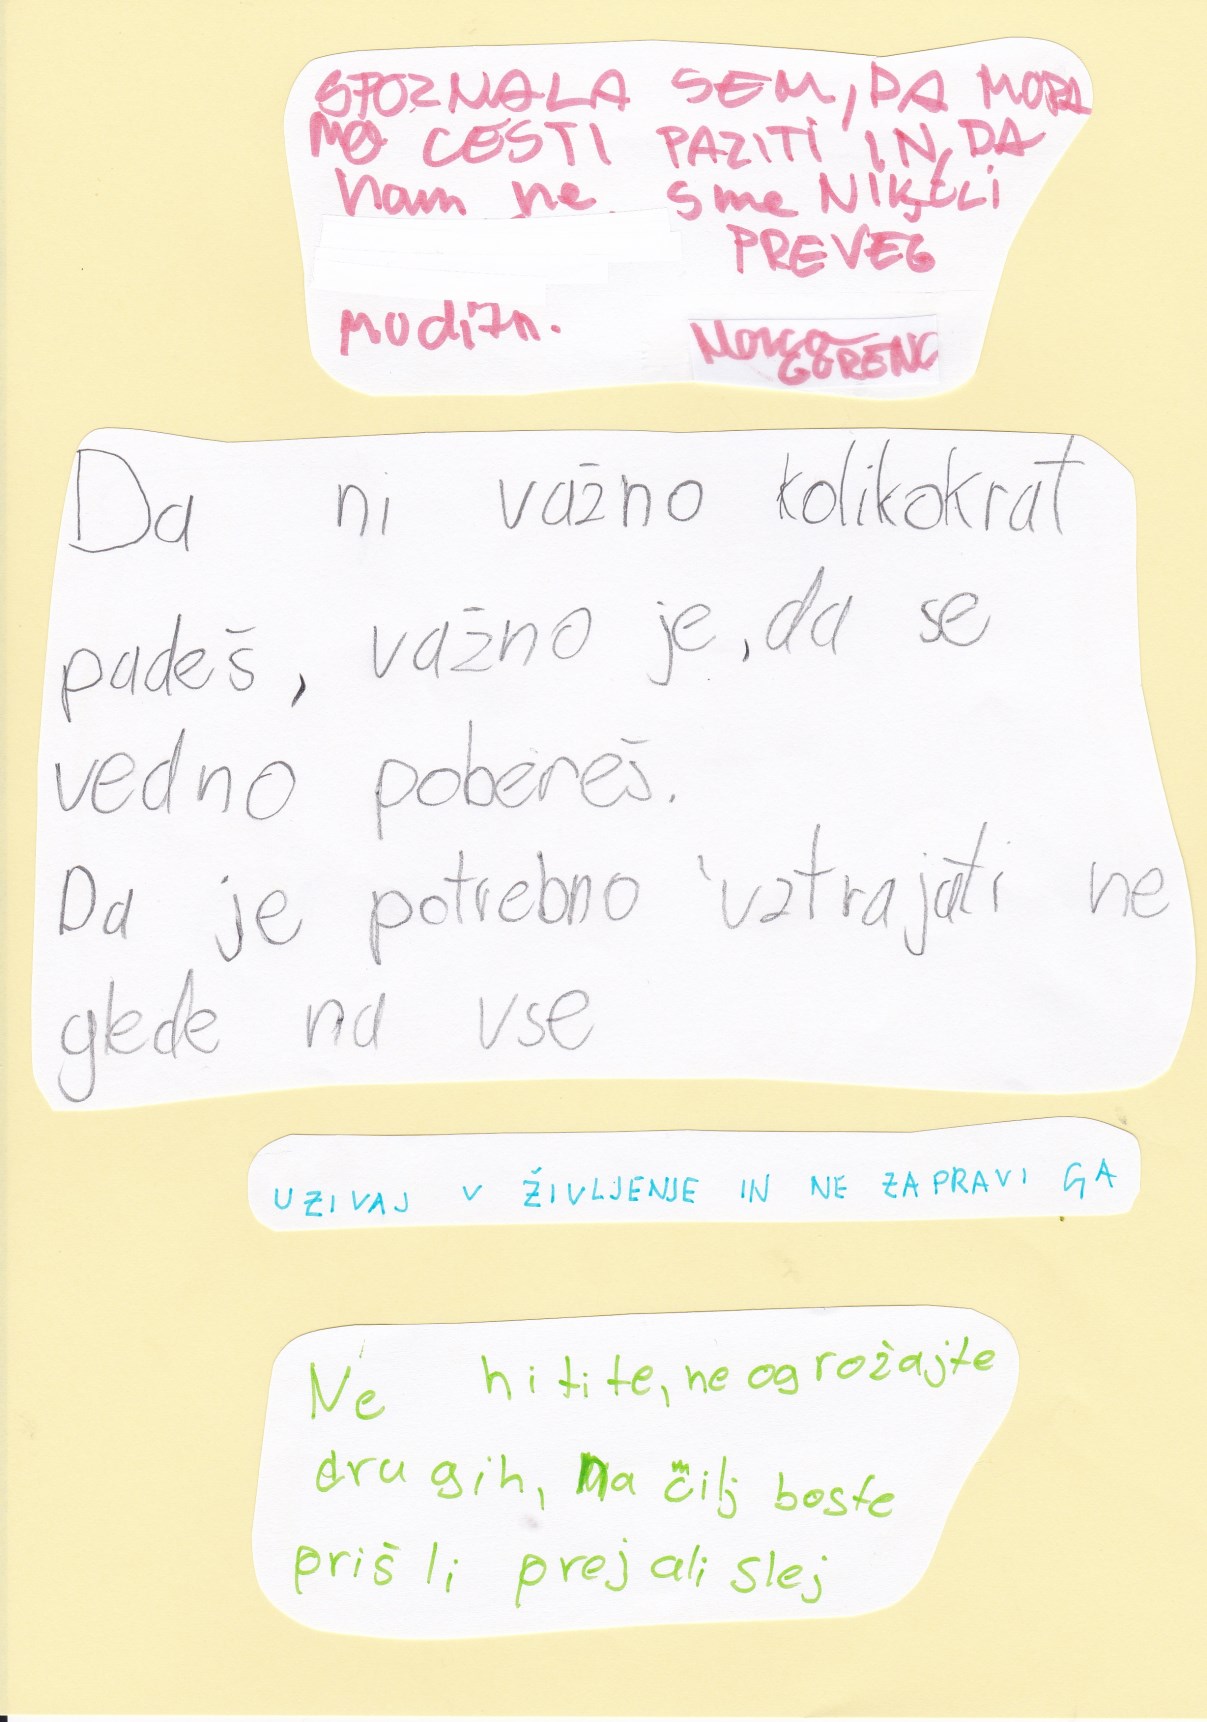 SPOZNALA SEM, DA MORA
MO CESTI PAZITI IN DA
nam ne sme NIKOLI
PREVEČ
mudi
GORENC
Da ni važno kolikokrat
padeš, važno je, da se
vedno pobereš.
Da je potrebno vztrajati ne
glede na vse
UZIVAJ V ŽIVLJENJE IN NE ZAPRAVI GA
Ne hitite, ne ogrožajte
drugih, Na čilj boste
prišli prej ali slej